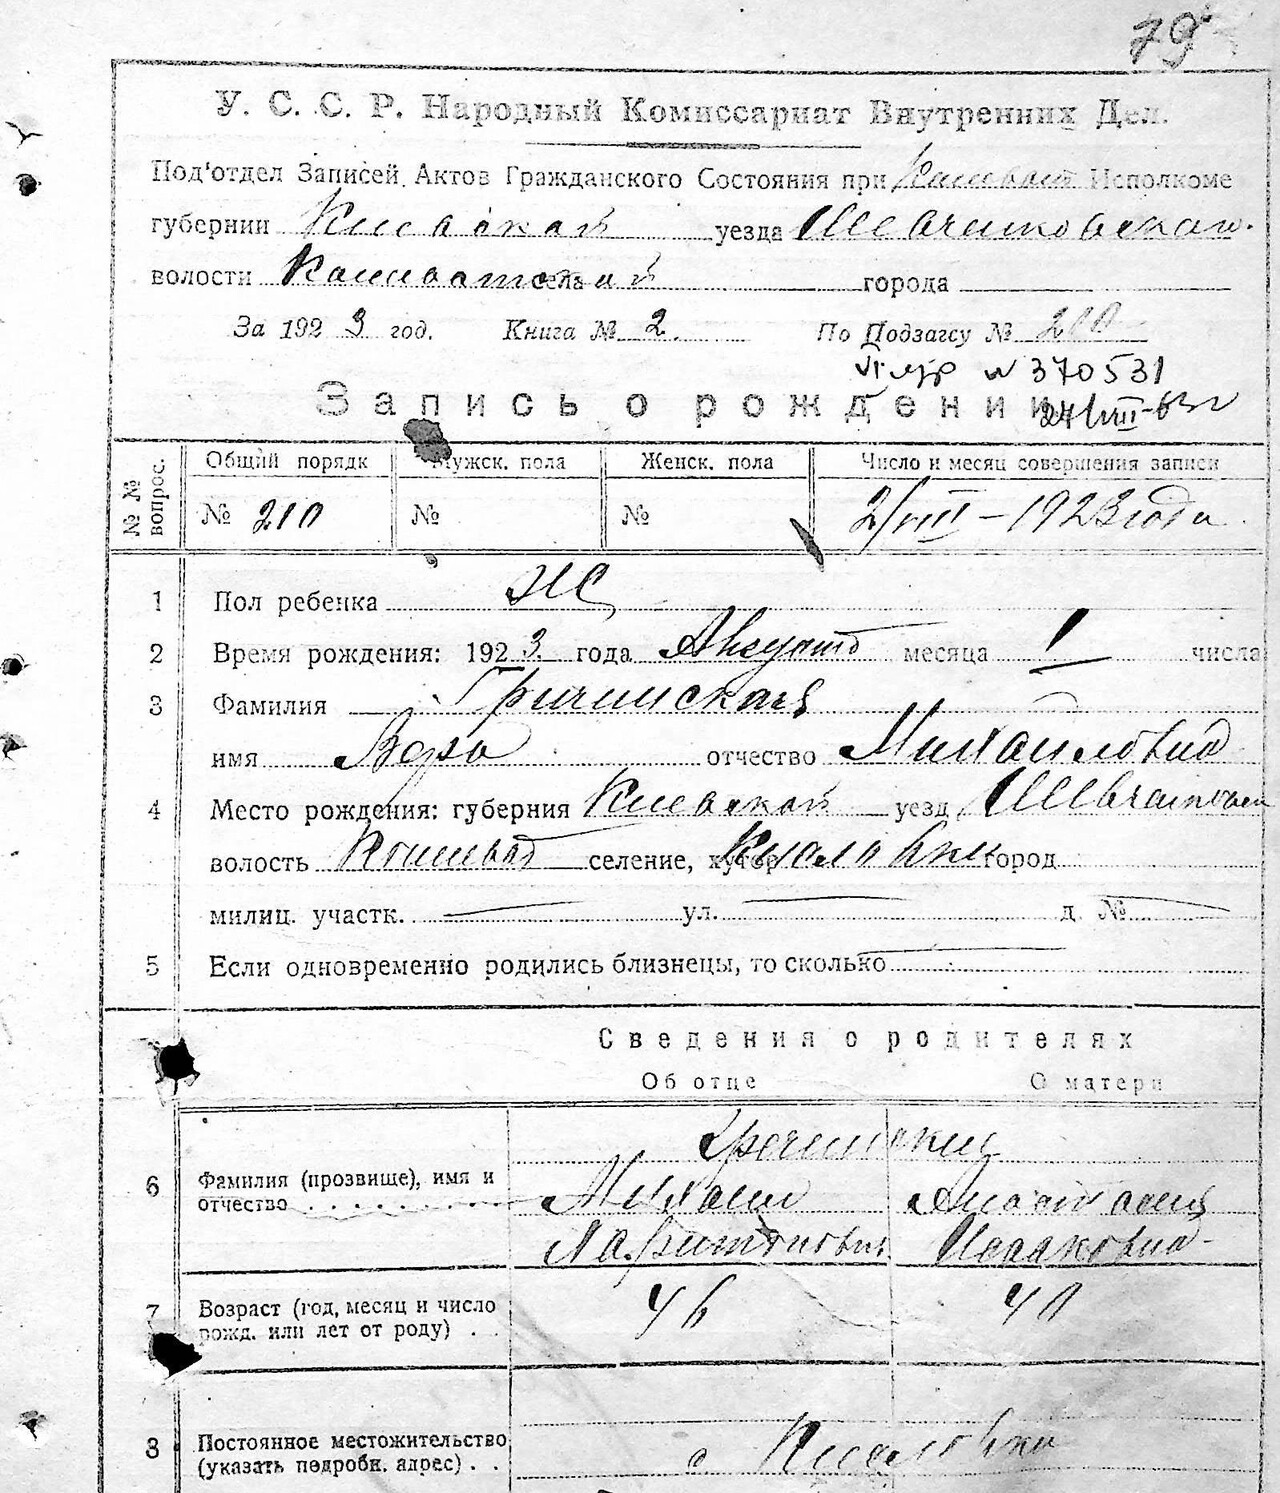 79
У. С. С. Р. Народный Комиссариат Внутренних Дел.
Под'отдел Записей Актов Гражданского Состояния при Кашват Исполкоме
губернии Киевской уезда Шевченковскаго.
волости Кашватской села города
За 1923 год. Книга № 2. По Подзагсу № 210
№ 370531
Запись о рождении
24/VIII-63 г
№ № вопрос. Общий порядк Мужск. пола Женск. пола Число и месяц совершения записи
№ 210 № № 2/VIII – 1923 года
1 Пол ребенка Ж
2 Время рождения: 1923 года Август месяца 1 числа
3 Фамилия Гричинская
имя Вера отчество Михайловна
4 Место рождения: губерния Киевской уезд Шевченков
волость Кашват селение, хутор город
милиц. участк. ул. д. №
5 Если одновременно родились близнецы, то сколько
Сведения о родителях
Об отце О матери
Гречинский
6 Фамилия (прозвище), имя и Михаил Анастасия
отчество Исааковна
7 Возраст (год, месяц и число 46 40
рожд. или лет от роду) . .
8 Постоянное местожительство с
(указать подробн. адрес) . .